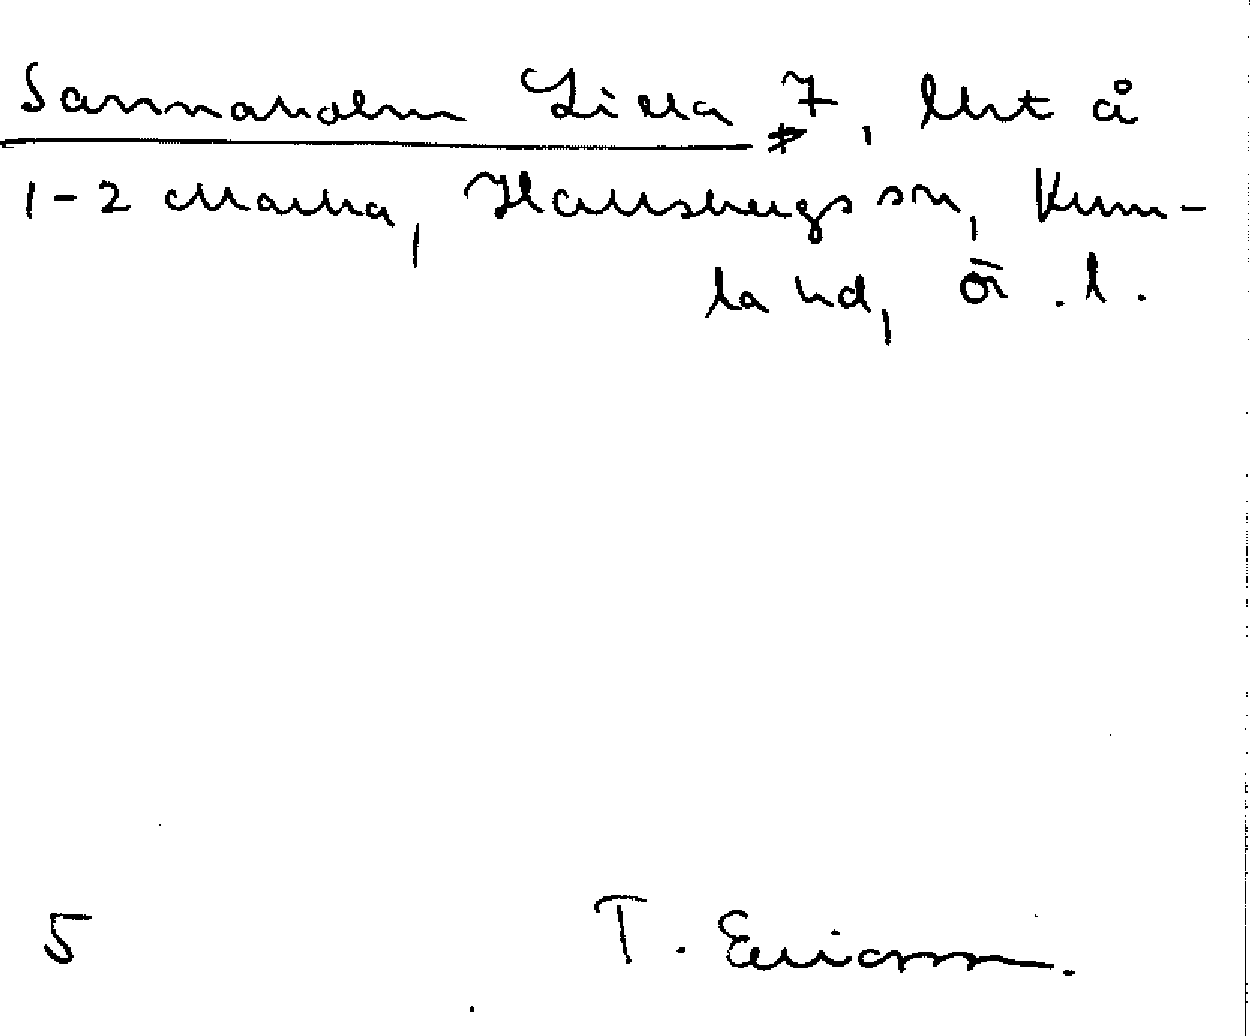 Sannaholm Lilla 7, lht å
1-2 Marka, Hallsbergs sn, Kum-
la hd, Ör. l.
5 T. Ericsson.